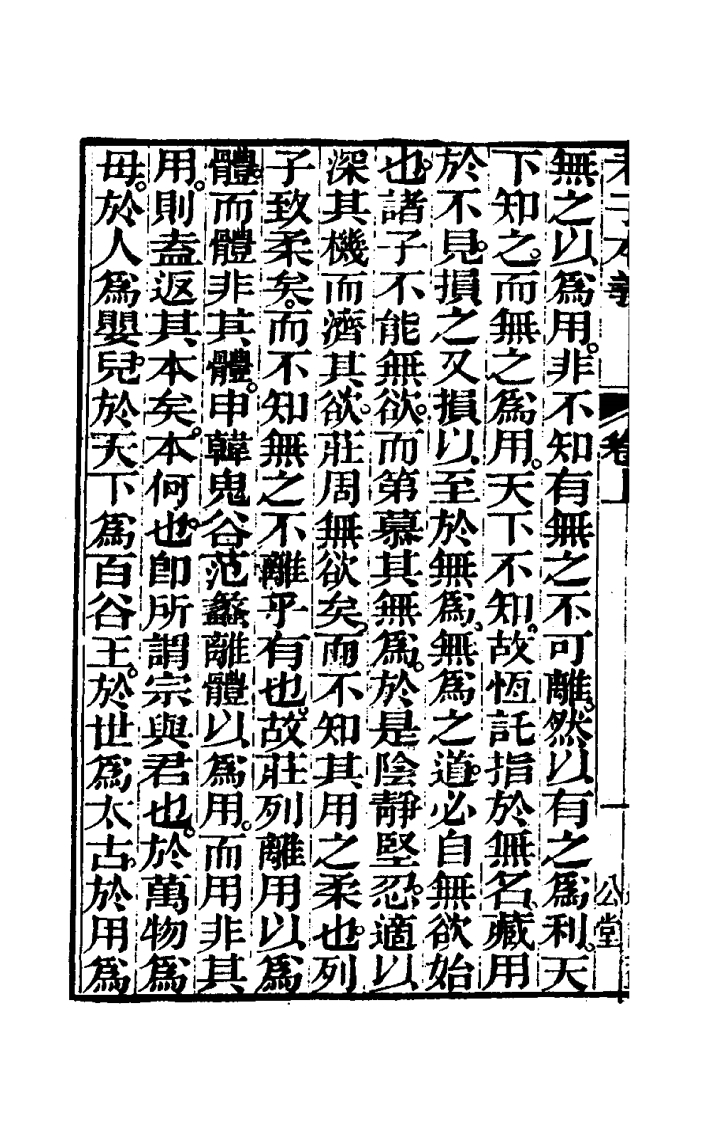 老子本義 卷上 一 公堂
無之以爲用。非不知有無之不可離。然以有之爲利。天
下知之。而無之爲用。天下不知。故恆託指於無名、藏用
於不見。損之又損以至於無爲、無爲之道。必自無欲始
也。諸子不能無欲。而第慕其無爲。於是陰靜堅忍。適以
深其機而濟其欲。莊周無欲矣。而不知其用之柔也。列
子致柔矣。而不知無之不離乎有也。故莊列離用以爲
體。而體非其體。申韓鬼谷范蠡離體以爲用。而用非其
用。則盍返其本矣。本何也。卽所謂宗與君也。於萬物爲
母。於人爲嬰兒。於天下爲百谷王。於世爲太古。於用爲